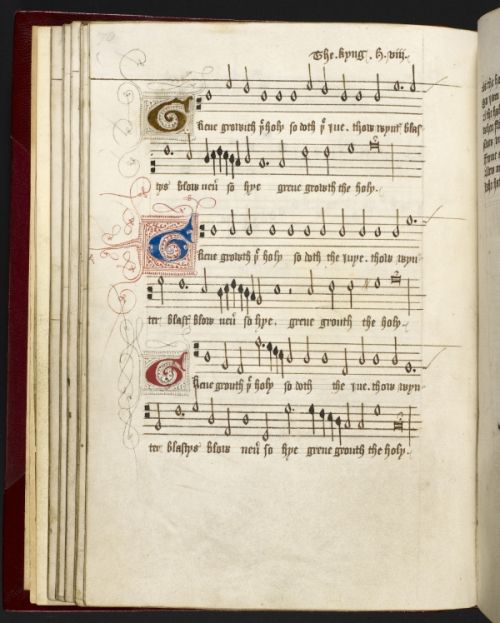 The . kyng . h . viii .
Grene growith yͤ holy so doth yͤ iue . thow wynt blas
tys blow neuͬ so hye grene growth the holy .
Grene growth yͤ holy so doth the iuye . thow wyn-
ter blast blow neuͬ so hye . grene grouth the holy .
Grene grouth yͤ holy so doth the iue . thow wyn-
ter blastys blow neuͬ so hye grene grouth the holy .